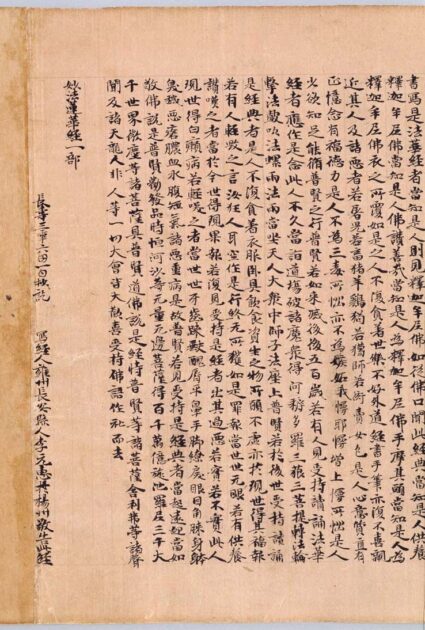 書寫是法華經者當知是人則見釋迦牟尼佛如從佛口聞此經典當知是人供養
釋迦牟尼佛當知是人佛讚善哉當知是人為釋迦牟尼佛手摩其頭當知是人為
釋迦牟尼佛衣之所覆如是之人不復貪著世樂不好外道經書手筆亦復不喜親
近其人及諸惡者若屠兒若畜猪羊鷄狗若獵師若衒賣女色是人心意質直有
正憶念有福德力是人不為三毒所惱亦不為嫉妬我慢耶慢增上慢所惱是人
少欲知足能脩普賢之行普賢若如來滅後後五百歲若有人見受持讀誦法華
經者應作是念此人不久當詣道場破諸魔衆得阿耨多羅三藐三菩提轉法輪
擊法鼓吹法螺雨法雨當坐天人大衆中師子法座上普賢若於後世受持讀誦
是經典者是人不復貪著衣服臥具飲食資生之物所願不虛亦於現世得其福報
若有人輕毀之言汝狂人耳空作是行終无所獲如是罪報當世世无眼若有供養
讚嘆之者當於今世得現果報若復見受持是經者出其過惡若實若不實此人
現世得白癩病若輕咲之者當世世牙齒踈缺醜脣平鼻手脚繚戾眼目角睞身體
臭穢惡瘡膿血水腹短氣諸惡重病是故普賢若見受持是經典者當起遠迎當如
敬佛說是普賢勸發品時恒河沙等无量无邊菩薩得百千萬億旋陁羅尼三千大
千世界微塵等諸菩薩具普賢道佛說是經時普賢等諸菩薩舍利弗等諸聲
聞及諸天龍人非人等一切大會皆大歡喜受持佛語作礼而去
妙法蓮華經一部
長壽三年六月一日抄訖 寫經人雍州長安縣人李元惠於楊州敬告此經